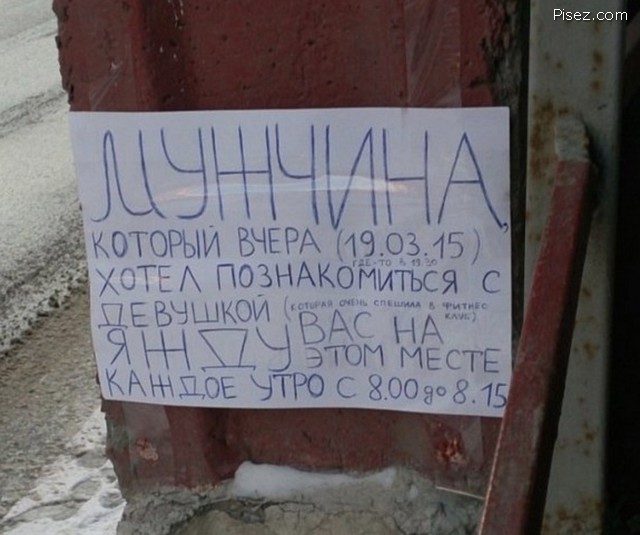 Pisez.com
МУЖЧИНА,
КОТОРЫЙ ВЧЕРА (19.03.15)
ГДЕ-ТО В 19.30
ХОТЕЛ ПОЗНАКОМИТЬСЯ С
ДЕВУШКОЙ (КОТОРАЯ ОЧЕНЬ СПЕШИЛА В ФИТНЕС КЛУБ)
Я ЖДУ ВАС НА
ЭТОМ МЕСТЕ
КАЖДОЕ УТРО С 8.00 до 8.15